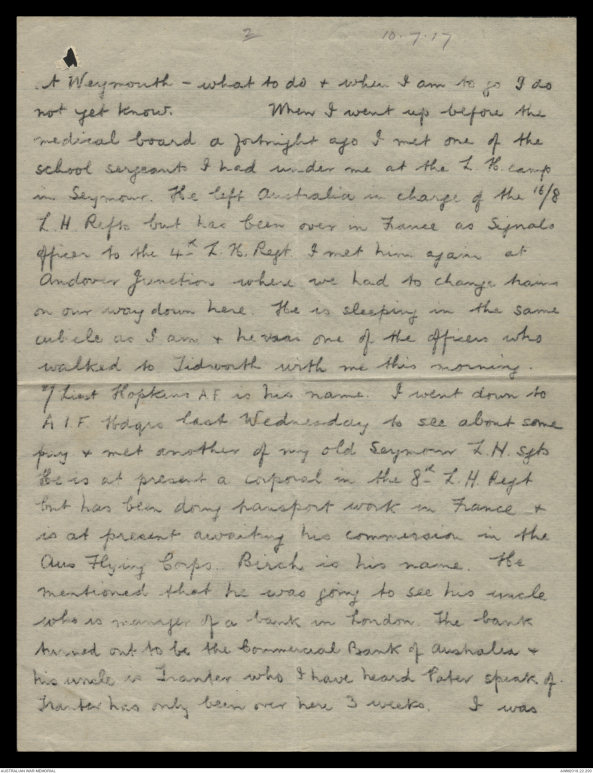 2
10.7.17
at Weymouth - what to do & when I am to go I do
not yet know. When I went up before the
medical board a fortnight ago I met one of the
school sergeants I had under me at the L.H. camp
in Seymour. He left Australia in charge of the 16/8
L.H. Refts but has been over in France as Signals
officer to the 4th L.H. Regt I met him again at
Andover Junction where we had to change trains
on our way down here. He is sleeping in the same
cubicle as I am & he was one of the officers who
walked to Tidworth with me this morning.
Lieut Hopkins A.F. is his name. I went down to
A.I.F. Hdqrs last Wednesday to see about some
pay & met another of my old Seymour L.H. sgts
He is at present a corporal in the 8th L.H. Regt
but has been doing transport work in France &
is at present awaiting his commission in the
Aus Flying Corps. Birch is his name. He
mentioned that he was going to see his uncle
who is manager of a bank in London. The bank
turned out to be the Commercial Bank of Australia &
his uncle is Tranter who I have heard Pater speak of.
Tranter has only been over here 3 weeks. I was
AUSTRALIAN WAR MEMORIAL